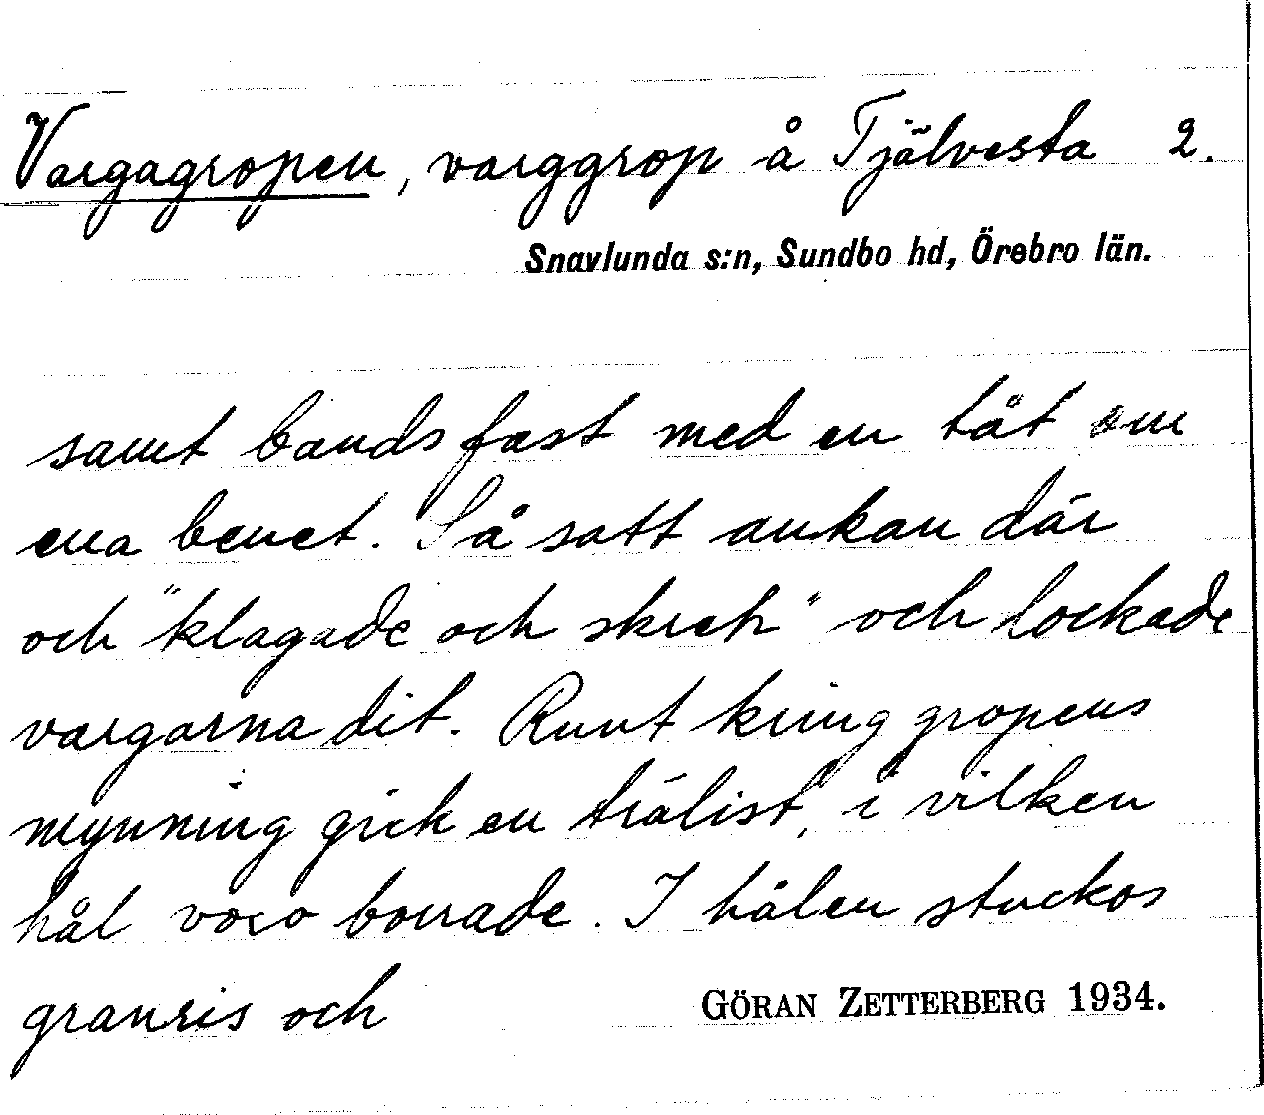 Vargagropen, varggrop å Tjälvesta 2.
Snavlunda s:n, Sundbo hd, Örebro län.
samt bands fast med en tåt om
ena benet. Så satt ankan där
och "klagade och skrek" och lockade
vargarna dit. Runt kring gropens
mynning gick en trälist, i vilken
hål voro borrade. I hålen stuckos
granris och
GÖRAN ZETTERBERG 1934.